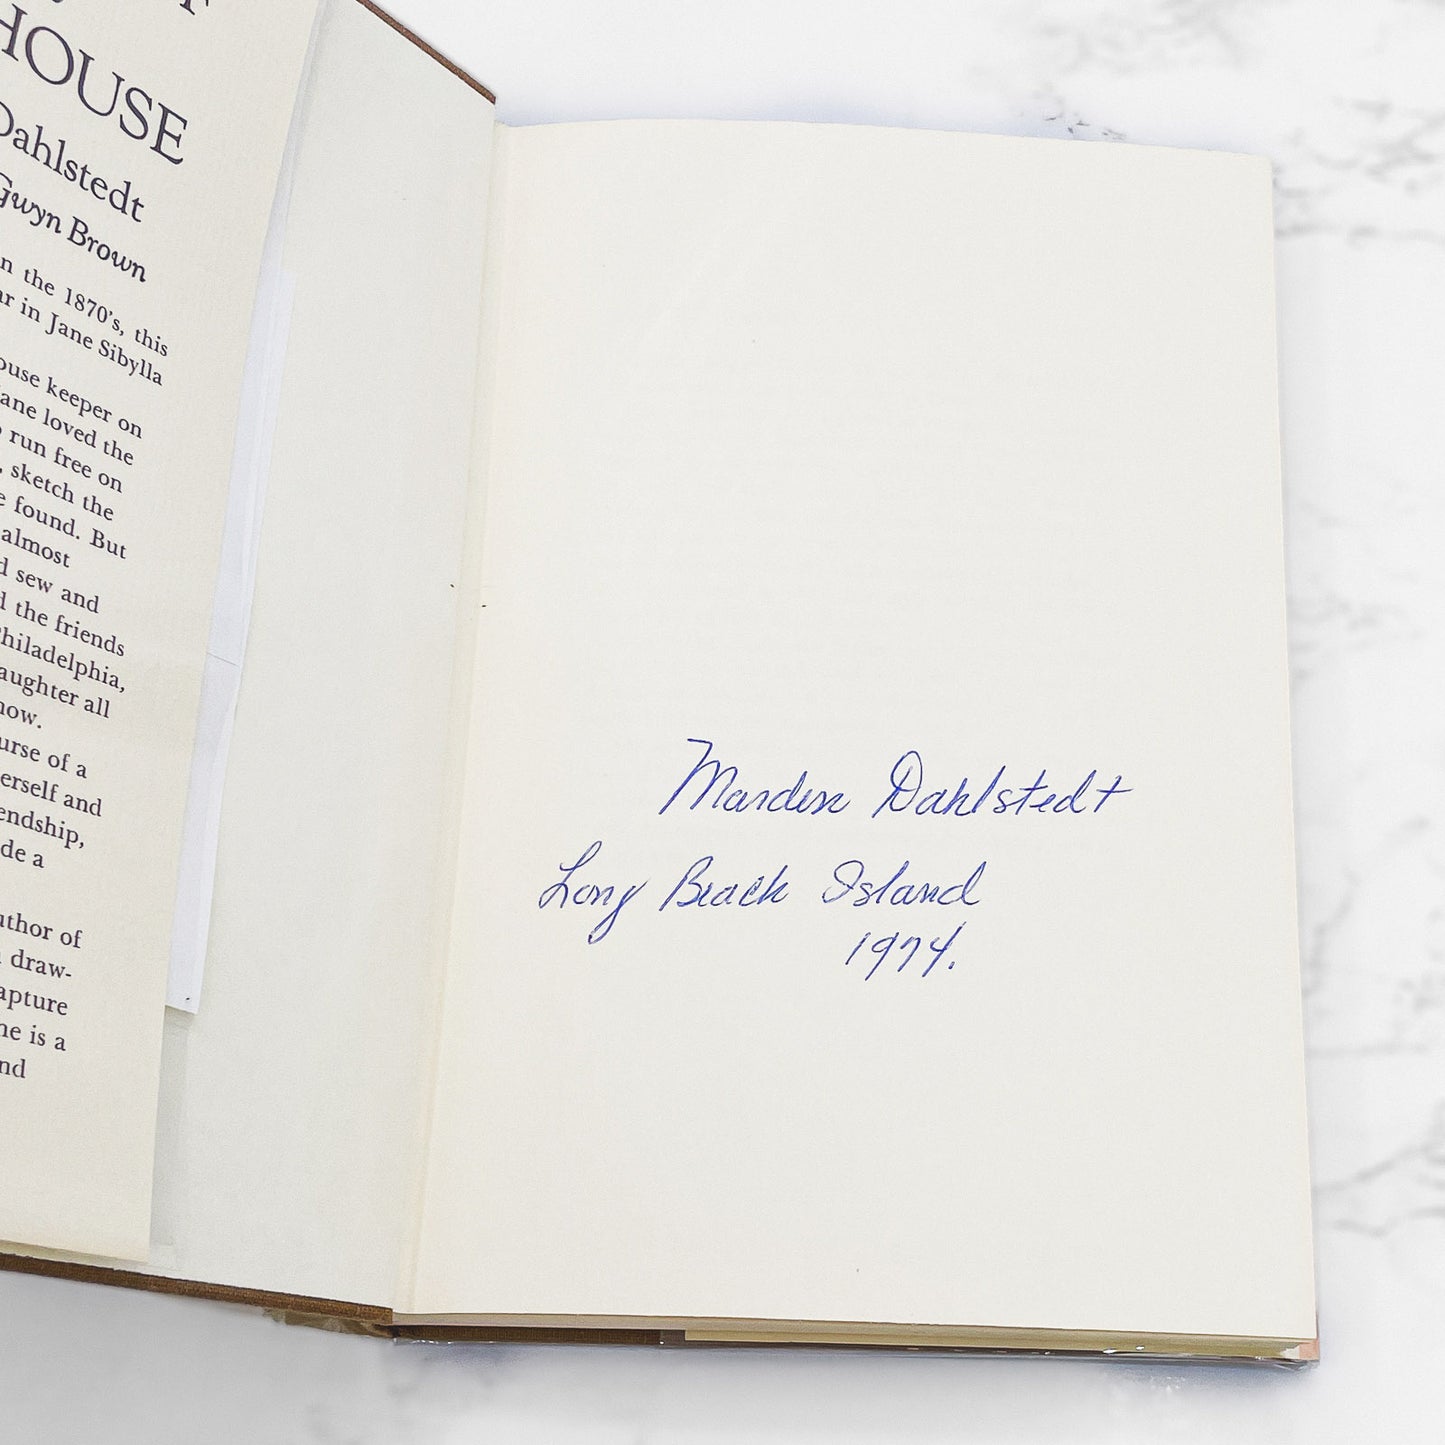 HOUSE
Dahlstedt
Gwyn Brown
in the 1870's, this
in Jane Sibylla
keeper on
Jane loved the
run free on
, sketch the
found. But
almost
sew and
the friends
Philadelphia,
all
now.
of a
herself and
friendship,
a
author of
draw-
capture
is a
Marden Dahlstedt
Long Beach Island
1974.